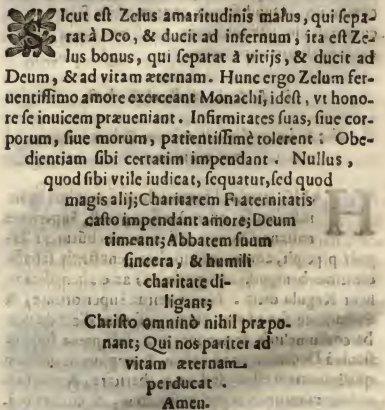 SIcut eſt Zelus amaritudinis malus, qui ſepa-
rat à Deo, & ducit ad infernum, ita eſt Ze-
lus bonus, qui ſeparat à vitijs, & ducit ad
Deum, & ad vitam æternam. Hunc ergo Zelum fer-
uentiſſimo amore exerceant Monachi, ideſt, vt hono-
re ſe inuicem præueniant. Infirmitates ſuas, ſiue cor-
porum, ſiue morum, patientiſſimè tolerent: Obe-
dientiam ſibi certatim impendant. Nullus,
quod ſibi vtile iudicat, ſequatur, ſed quod
magis alij; Charitatem Fraternitatis
caſto impendant amore; Deum
timeant; Abbatem ſuum
ſincera, & humili
charitate di-
ligant;
Chriſto omninò nihil præpo-
nant; Qui nos pariter ad
vitam æternam
perducat.
Amen.